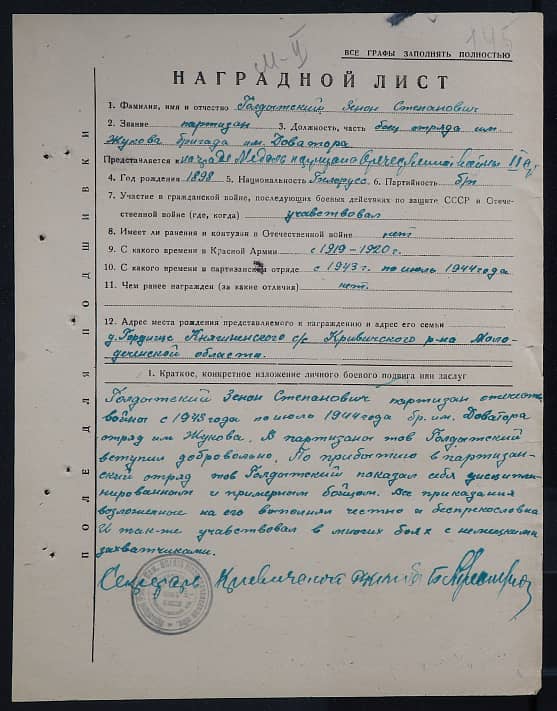 145
М-II
ВСЕ ГРАФЫ ЗАПОЛНЯТЬ ПОЛНОСТЬЮ
НАГРАДНОЙ ЛИСТ
1. Фамилия, имя и отчество Зенон Степанович
2. Звание партизан 3. Должность, часть боец отряда им
Жукова бригада им. Доватора
Представляется к Медаль партизана Отечественной войны II ст
4. Год рождения 1898 5. Национальность Белорус 6. Партийность б/п
7. Участие в гражданской войне, последующих боевых действиях по защите СССР и Отече-
ственной войне (где, когда) учавствовал
8. Имеет ли ранения и контузии в Отечественной войне нет
9. С какого времени в Красной Армии с 1919-1920 г.
10. С какого времени в партизанском отряде с 1943 г. по июль 1944 года
11. Чем ранее награжден (за какие отличия) нет.
12. Адрес места рождения представляемого к награждению и адрес его семьи
д. Княгиненского с/с Кривичского р-на Моло-
дечненской области.
1. Краткое, конкретное изложение личного боевого подвига или заслуг
Зенон Степанович партизан отечеств
войны с 1943 года по июль 1944 года бр. им. Доватара
отряд им Жукова. В партизаны тов
вступил добровольно. По прибытию в партизан-
ский отряд тов показал себя дисципли-
нированным и примерным бойцом. Все приказания
возложенные на его выполнял честно и беспрекословно
И так-же учавствовал в многих боях с немецкими
захватчиками.
Секретарь Кривичского
ПОЛЕ ДЛЯ ПОДШИВКИ